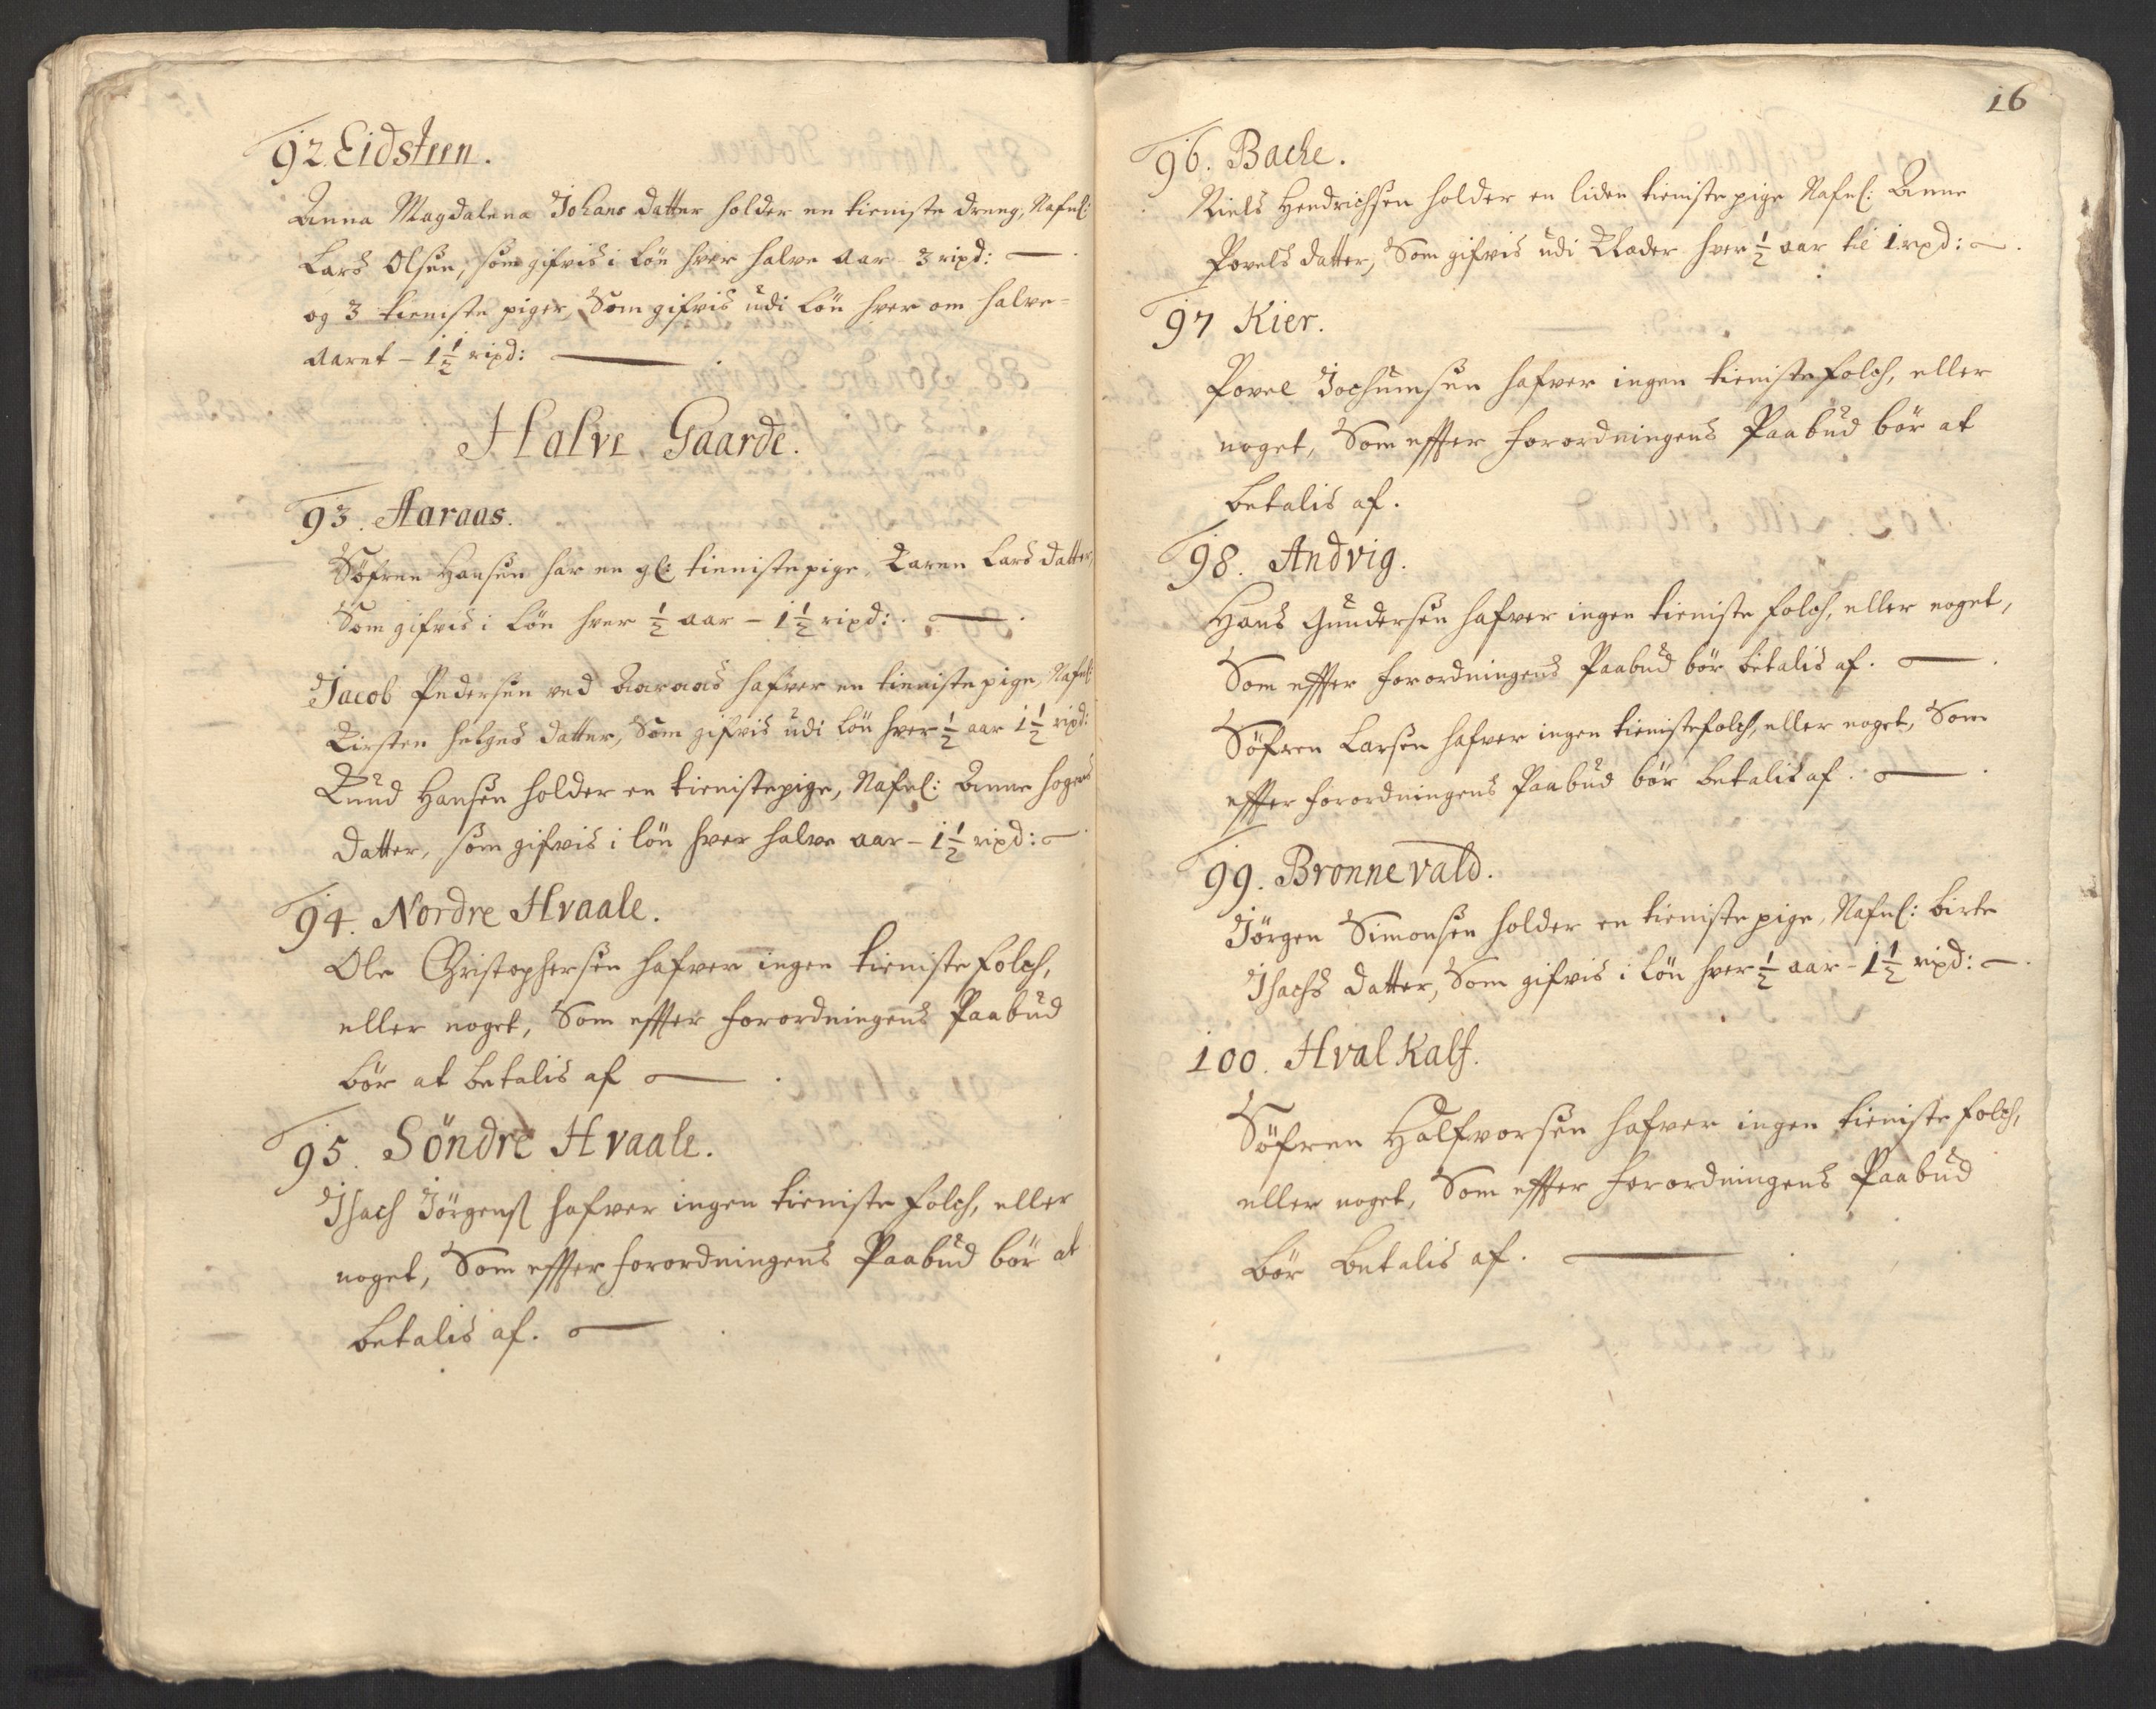 92. Eidsteen.
Anna Magdalena Johans datter holder en tieniste dreng, Nafnl:
Lars Olsen, som gifvis i Lön hver halve Aar - 3 rixd:
og 3 tieniste piger, Som gifvis udi Lön hver om halve=
Aaret - 1½ rixd:
Halve Gaarde.
93. Aaraas.
Söfren Hansen har en gl: tienistepige, Karen Lars datter,
Som gifvis i Lön hver ½ aar - 1½ rixd:
Jacob Pedersen ved Aaraas hafver en tienistepige, Nafnl:
Kirsten Helges datter, Som gifvis udi Lön hver ½ aar 1½ rixd:
Knud Hansen holder en tienistepige, Nafnl: Anne
datter, som gifvis i lön hver halve aar - 1½ rixd:
94. Nordre Hvaale.
Ole Christophersen hafver ingen tieniste folch,
eller noget, Som effter forordningens Paabud
bör at betalis af
95. Söndre Hvaale.
Isach Jörgens: hafver ingen tieniste folch, eller
noget, Som effter forordningens Paabud bör at
betalis af.
16
96. Bache.
Niels Hendrichsen holder en liden tieniste pige Nafnl: Anne
Povels datter, Som gifvis udi Klæder hver ½ aar til 1 rixd:
97 Kier.
Povel Jochumsen hafver ingen tienistefolch, eller
noget, Som effter forordningens Paabud bör at
betalis af.
98. Andvig.
Hans Gundersen hafver ingen tieniste folch, eller noget,
Som effter forordningens Paabud bör betalis af.
Söfren Larsen hafver ingen tienistefolch, eller noget, Som
effter forordningens Paabud bör betalis af.
99. Bronnevald.
Jörgen Simonsen holder en tieniste pige, Nafnl: Birte
Isachs datter, Som gifvis i Lön hver ½ aar - 1½ rixd:
100. Hval Kalf.
Söfren Halfvorsen hafver ingen tieniste folch,
eller noget, Som effter forordningens Paabud
bör betalis af.